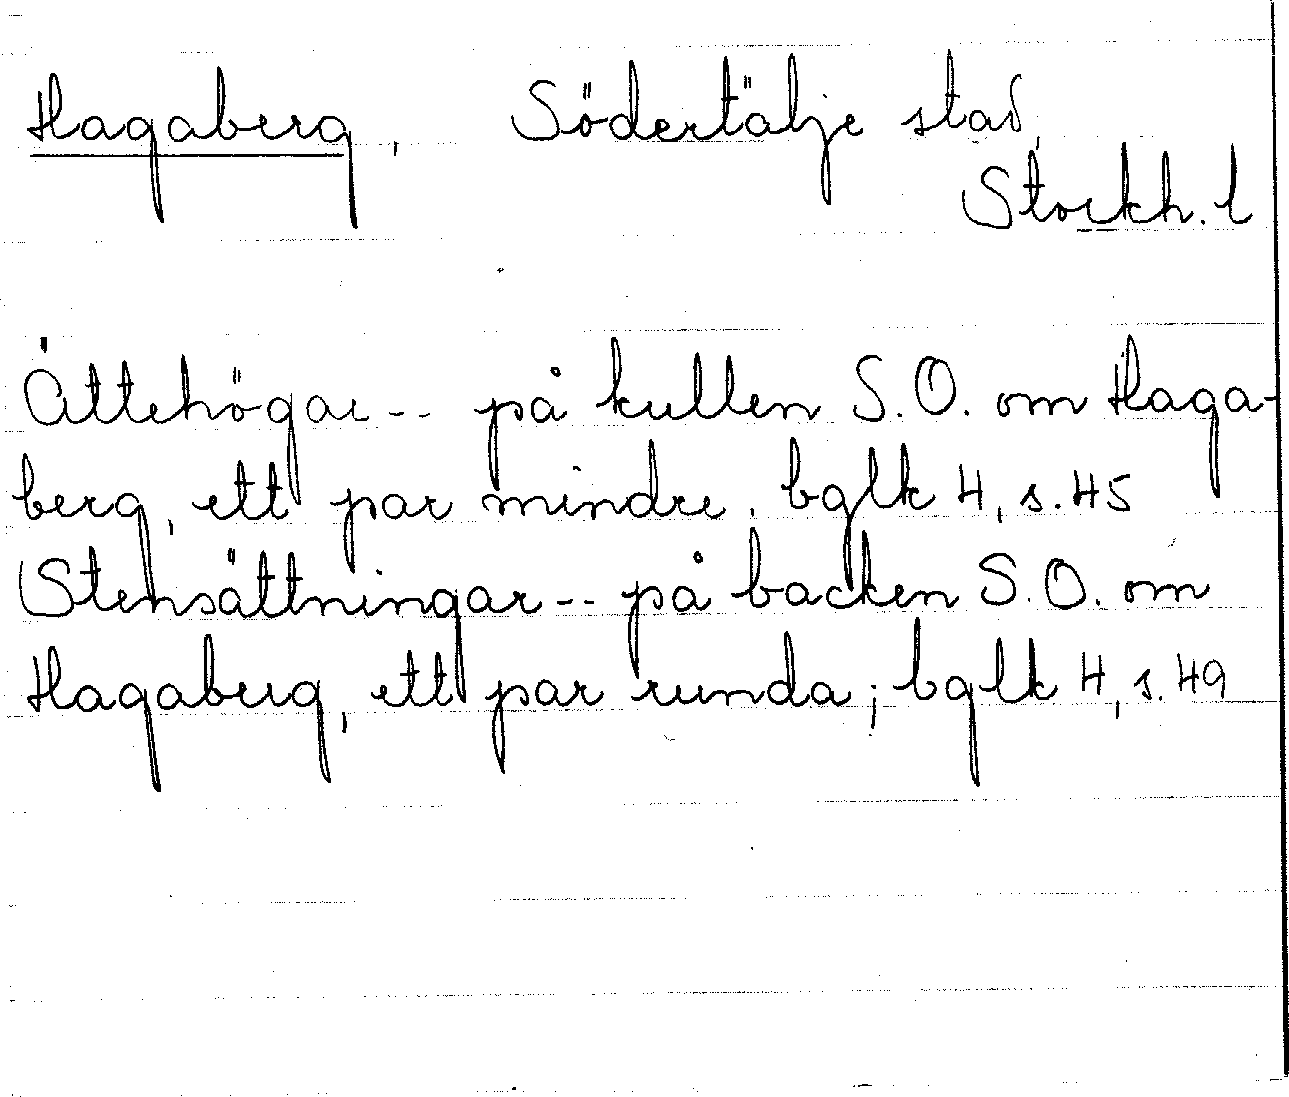 Hagaberg, Södertälje stad,
Stockh. l
Ättehögar -- på kullen S.O. om Haga-
berg, ett par mindre. bglk 4, s. 45
Stensättningar -- på backen S.O. om
Hagaberg, ett par runda; bglk 4, s. 49